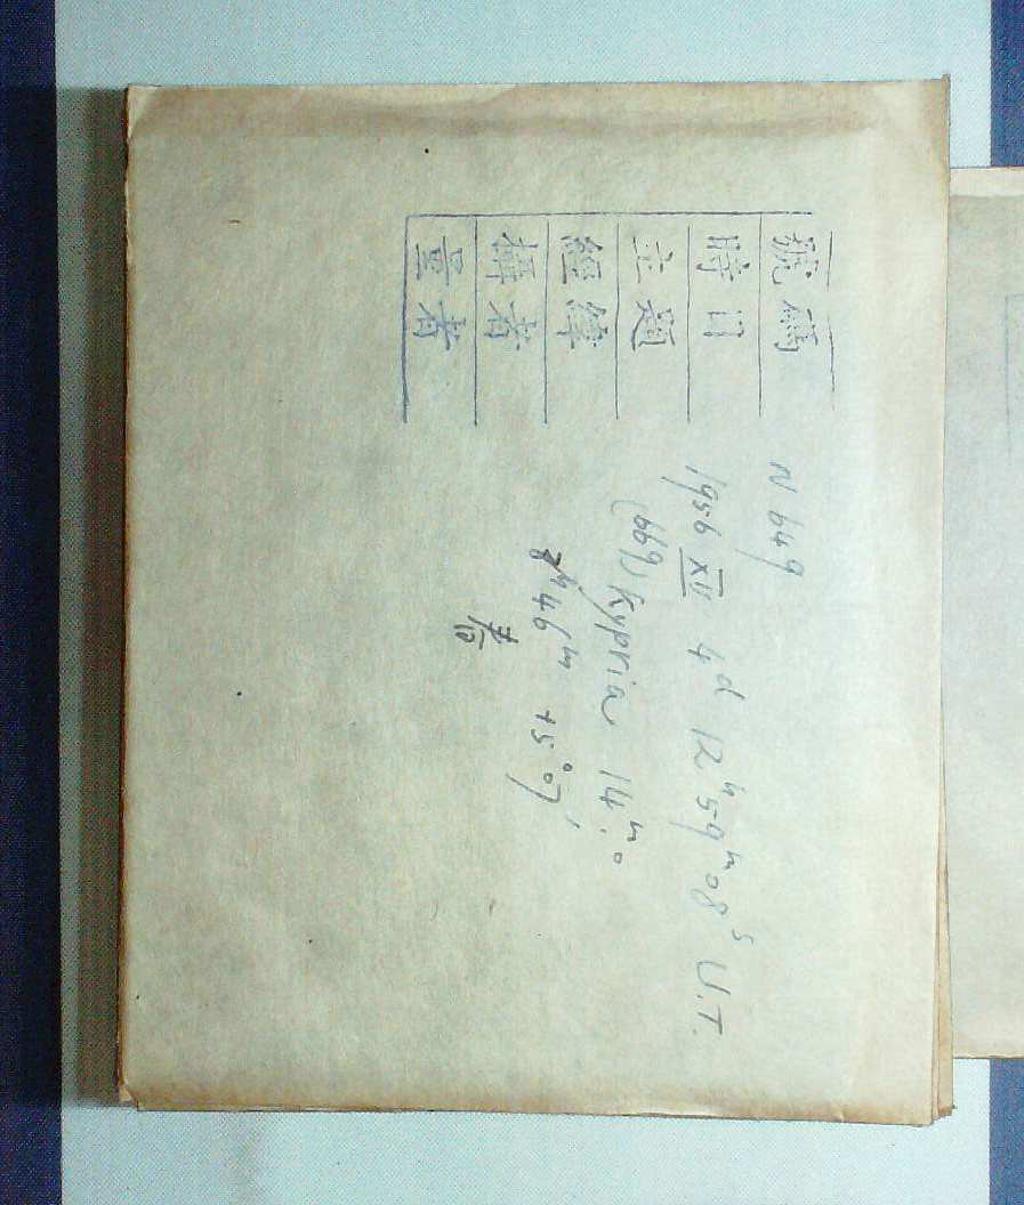 號碼 N 649
時日 1956 XII 4ᵈ 12ʰ 59ᵐ 08ˢ U.T.
主題 (669) Kypria 14ᵐ.0
經緯 46ᵐ +5°07′
攝者
量者